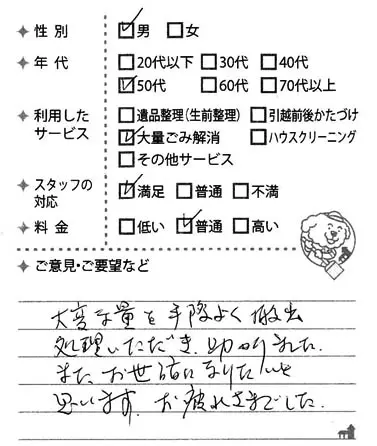 性 別 ☑男 □女
年 代 □20代以下 □30代 □40代
☑50代 □60代 □70代以上
利用した
サービス
□遺品整理(生前整理) □引越前後かたづけ
☑大量ごみ解消 □ハウスクリーニング
□その他サービス
スタッフの
対応
☑満足 □普通 □不満
料 金 □低い ☑普通 □高い
ご意見・ご要望など
大変な量を手際よく搬出
処理いただき、助かりました。
また、お世話になりたいと
思います。お疲れさまでした。